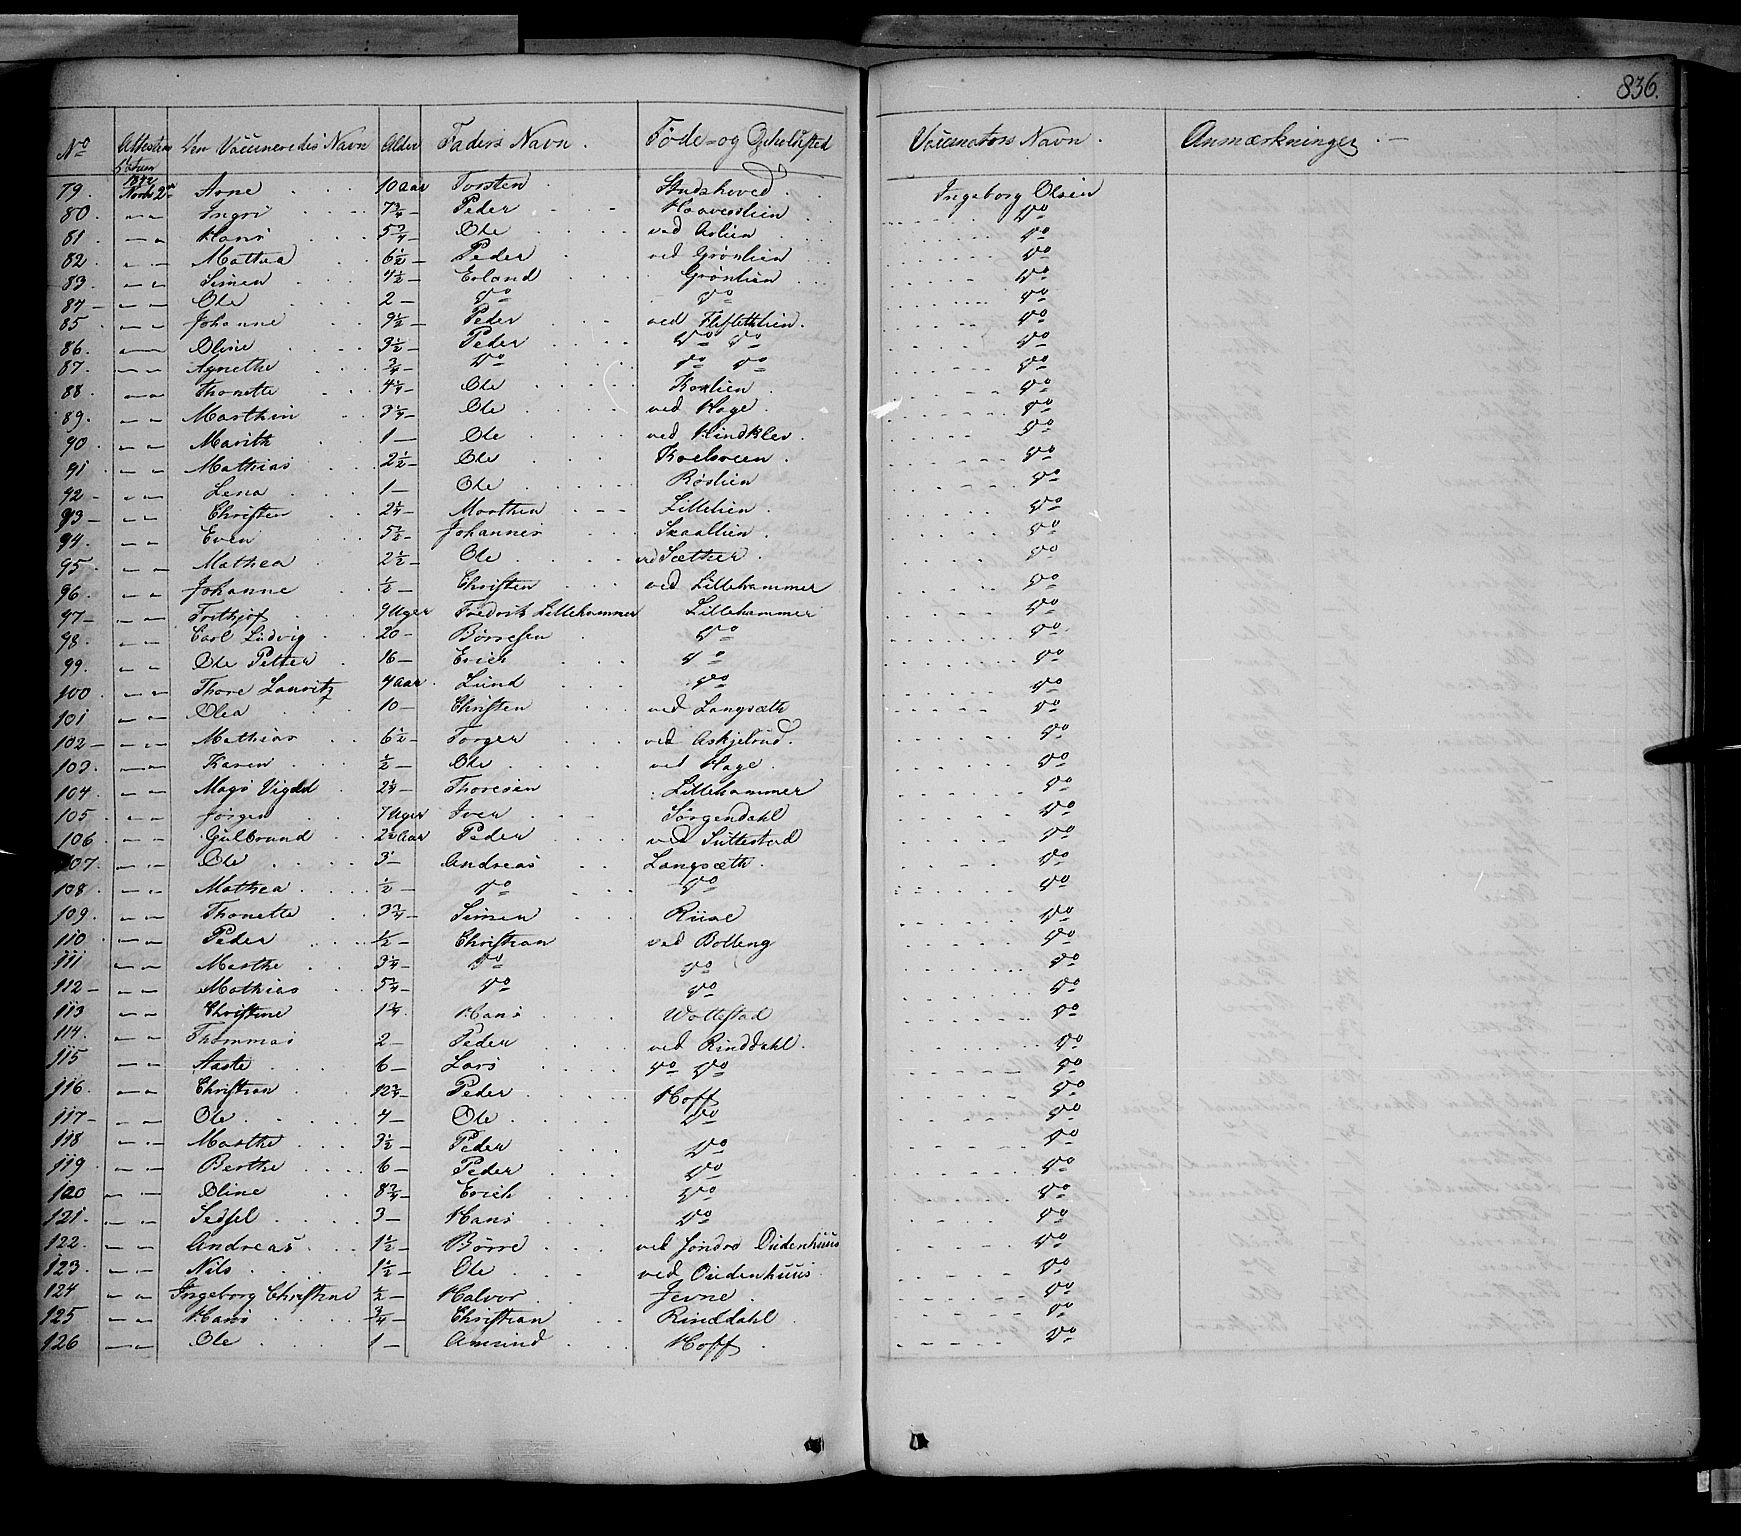 836.
No Attestens Datum Den Vaccineredes Navn Alder Faders Navn. Føde- og Opholdsted Vaccinators Navn. Anmærkninger. —
79. 1842 Novbr 2 Arne 10 Aar Torsten Studshoved. Ingeborg Olsen
80. — „ Ingri 7 3/4 — Peder Haaveslien Do
81 — „ Hans 5 3/4 — Ole ved Aslien Do
82. — „ Mathea 6 1/2 — Peder ved Grønlien Do
83. — „ Simen 4 1/2 — Erland Grønlien Do
84 — — „ Ole 2 — Do Do Do
85. — „ Johanne 9 1/2 — Peder ved Flesletlien. Do
86. — „ Oline 3 1/2 — Peder Do Do Do
87. — „ Agnethe 3/4 — Do Do Do Do
88. — „ Thonette 4 1/4 — Ole Roslien Do
89. — „ Marthin 3 1/4 — Ole ved Hage. Do
90. — „ Marith 1 — Ole ved Hindklev. Do
91. — „ Mathias 2 1/2 — Ole Do
92 — — „ Lena 1 — Ole Røslien Do
93 — — „ Christen 2 1/4 — Morthen Lillelien Do
94. — „ Even 5 1/2 — Johannes Skaallien. Do
95. — „ Mathea 2 1/2 — Ole ved Sæther. Do
96. — „ Johanne 1/2 — Christen ved Lillehammer Do
97 — — „ Frithjof 9 Uger Fredrik Lillehammer Lillehammer Do
98. — „ Carl Ludvig 20 — Børresen Do Do
99. — „ Ole Petter 16 — Erich Do Do
100. — „ Thore Lauritz 4 Aar. Lund Do Do
101 — „ Olea 10 — Christen ved Langsæth Do
102 — — „ Mathias 6 1/2 — Torger ved Askjelrud. Do
103. — „ Karen 1/2 — Ole ved Hage. Do
104. — „ Mags Vigdd 2 1/4 — Thoresen Lillehammer Do
105. — „ Jørgen 7 Uger Iver Sørgendahl Do
106 — „ Gulbrand 2 1/2 Aar Peder ved Suttestad Do
107. — „ Ole 3 — Andreas Langsæth. Do
108. — „ Mathea 1/2 — Do Do Do
109. — „ Thonette 3 3/4 — Simen Riise Do
110 — „ Peder 1/2 — Christian ved Bolleng Do
111 — „ Marthe 3 1/4 — Do Do Do
112 — — „ Mathias 5 3/4 — Do Do Do
113 — „ Christine 1 3/4 Hans Wottestad Do
114. — „ Thommas 2 — Peder ved Rinddahl. Do
115 — „ Aaste 6 — Lars Do Do Do
116. — „ Christian 12 3/4 — Peder Hoff Do
117 — — „ Ole 4 — Ole Do Do
118 — „ Marthe 3 1/2 — Peder Do Do
119 — „ Berthe 6 — Peder Do Do
120 — „ Oline 8 3/4 — Erich Do Do
121. — „ Sedsel 3 — Hans Do Do
122. — „ Andreas 1 1/2 — Børre ved Søndre Oudenhuus Do
123. — „ Nils 1 1/2 — Ole ved Oudenhuus. Do
124 — „ Ingeborg Christine 1/2 — Halvor Jevne. Do
125 — „ Hans 3/4 — Christian Rinddahl Do
126 — „ Ole 1 — Amund Hoff Do